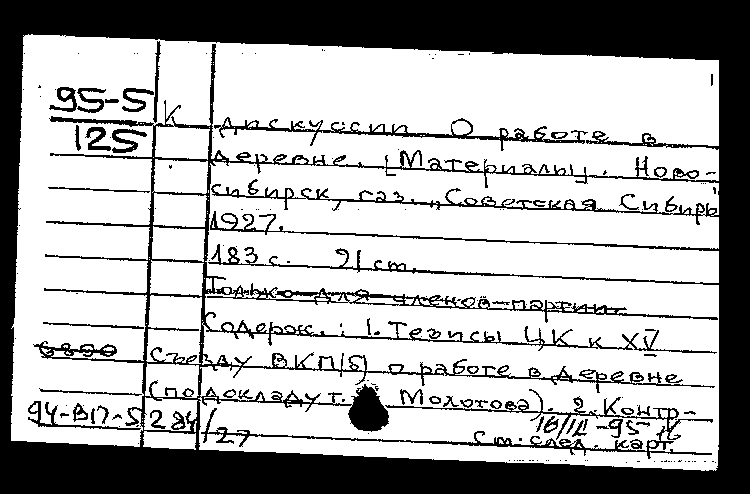 95-5
125
К дискуссии о работе в
деревне. [Материалы]. Ново-
сибирск, газ. „Советская Сибирь"
1927.
183 с. 21 см.
Только для членов партии.
Содерж.: 1. Тезисы ЦК к XV
съезду ВКП(б) о работе в деревне
(по докладу т. Молотова). 2. Контр-
94-ВП-5 284/27
См. след. карт.